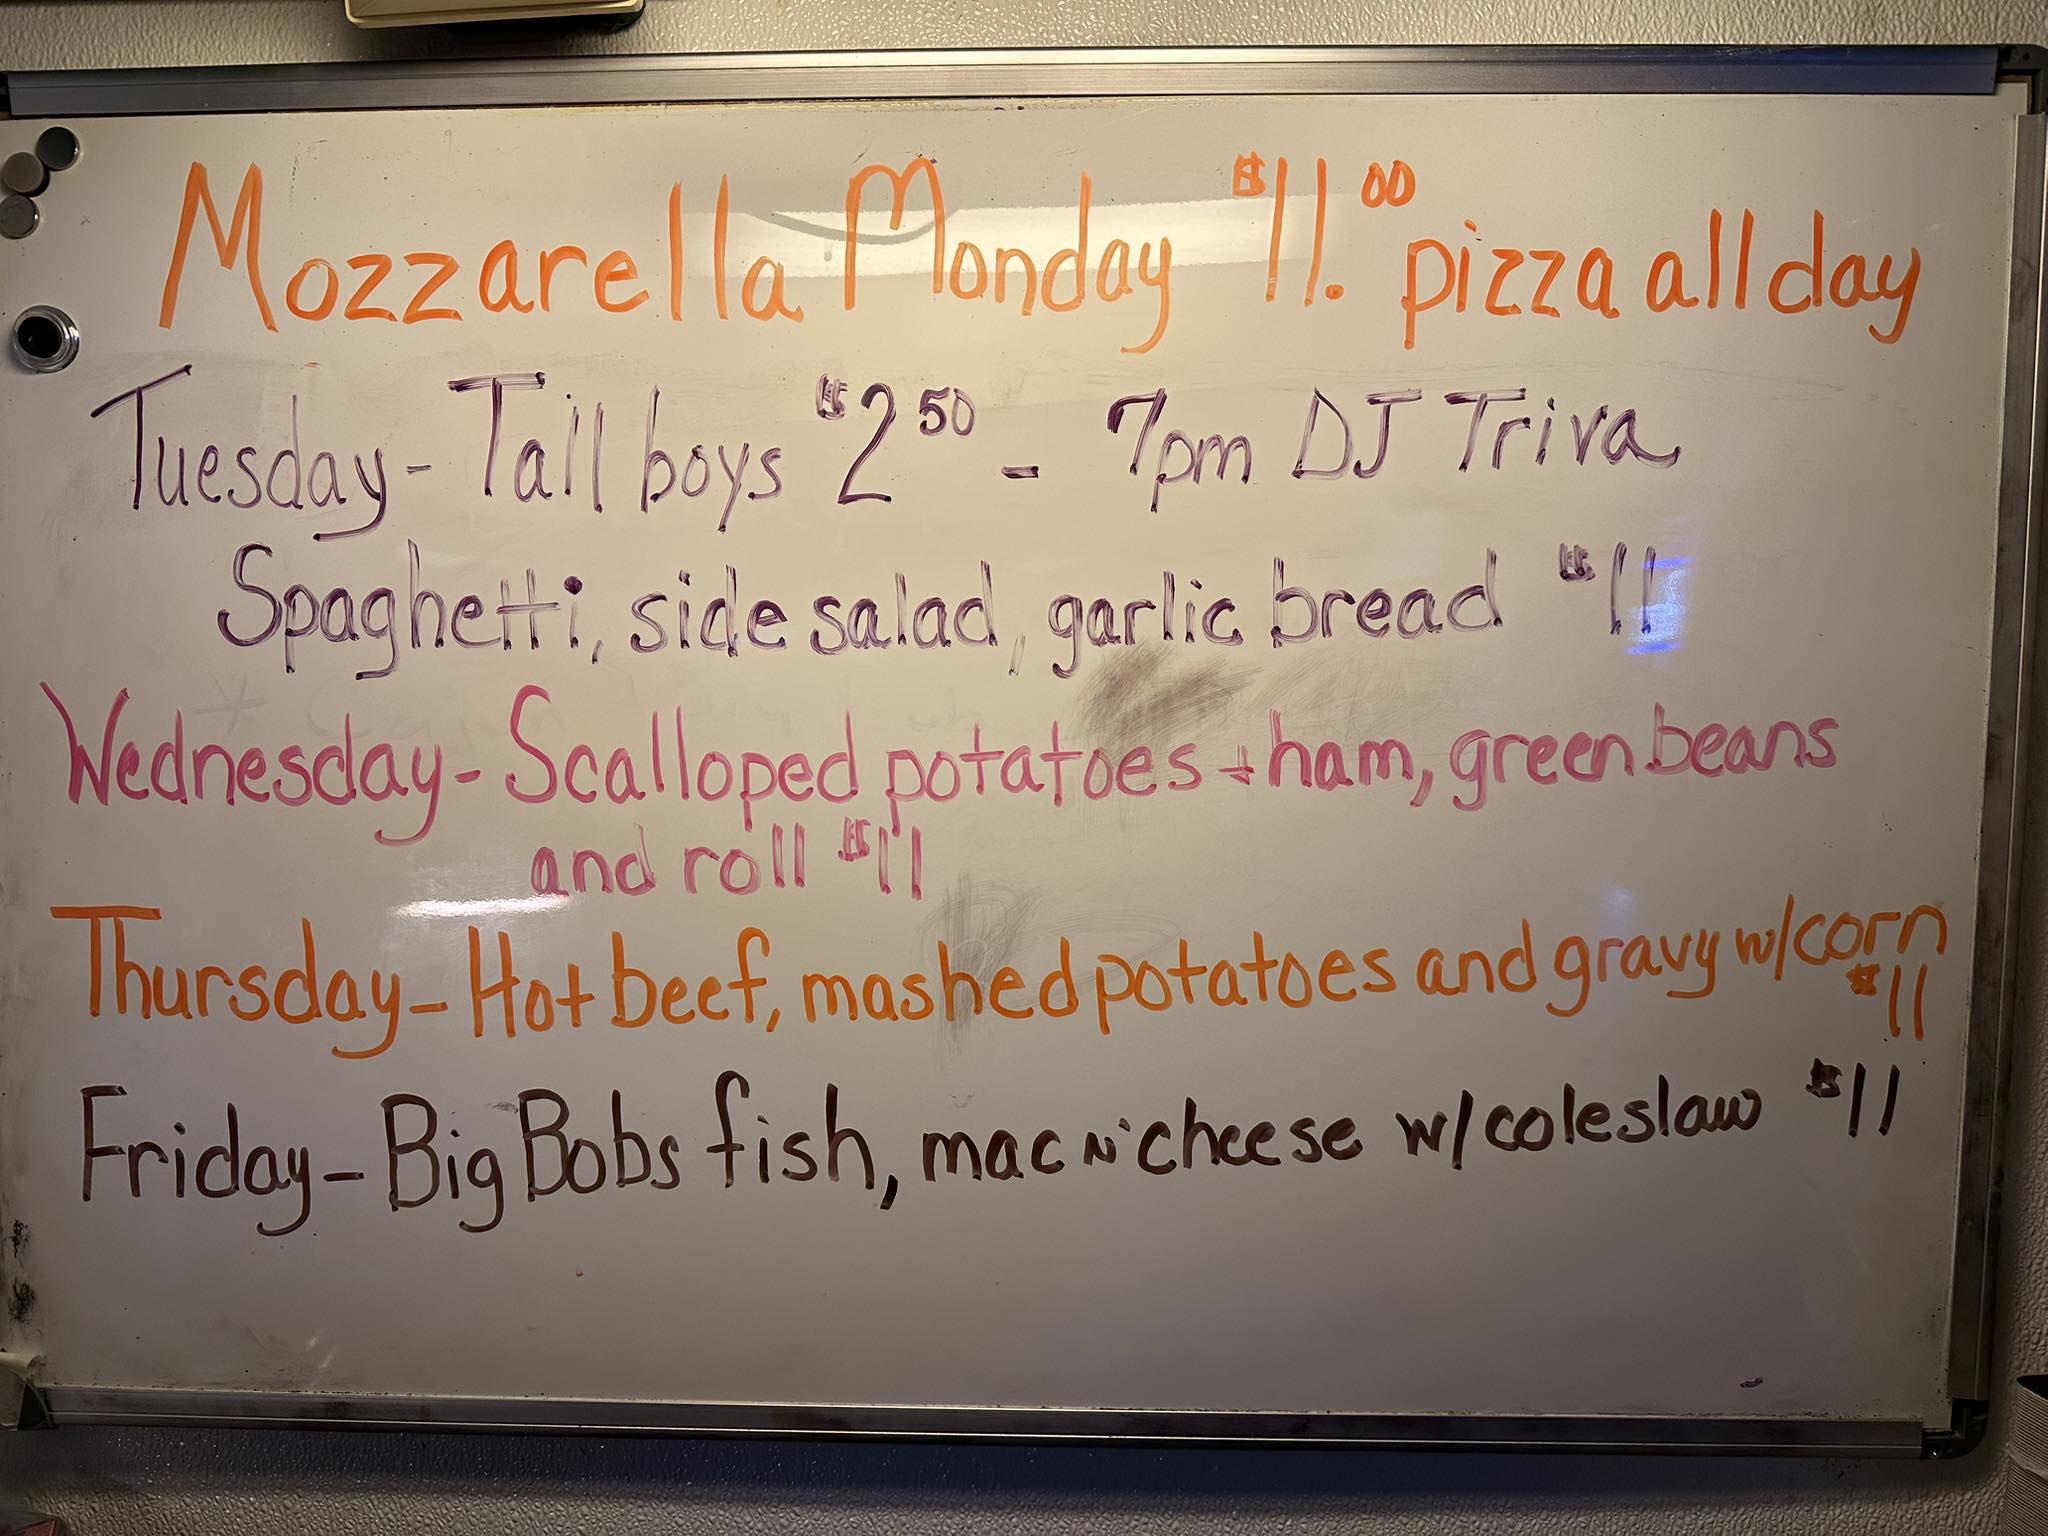 Mozzarella Monday $11.00 pizza all day
Tuesday - Tall boys $2 50 - 7pm DJ Triva
Spaghetti, side salad, garlic bread $11
Wednesday - Scalloped potatoes + ham, green beans
and roll $11
Thursday - Hot beef, mashed potatoes and gravy w/corn
$11
Friday - Big Bobs fish, mac n' cheese w/coleslaw $11